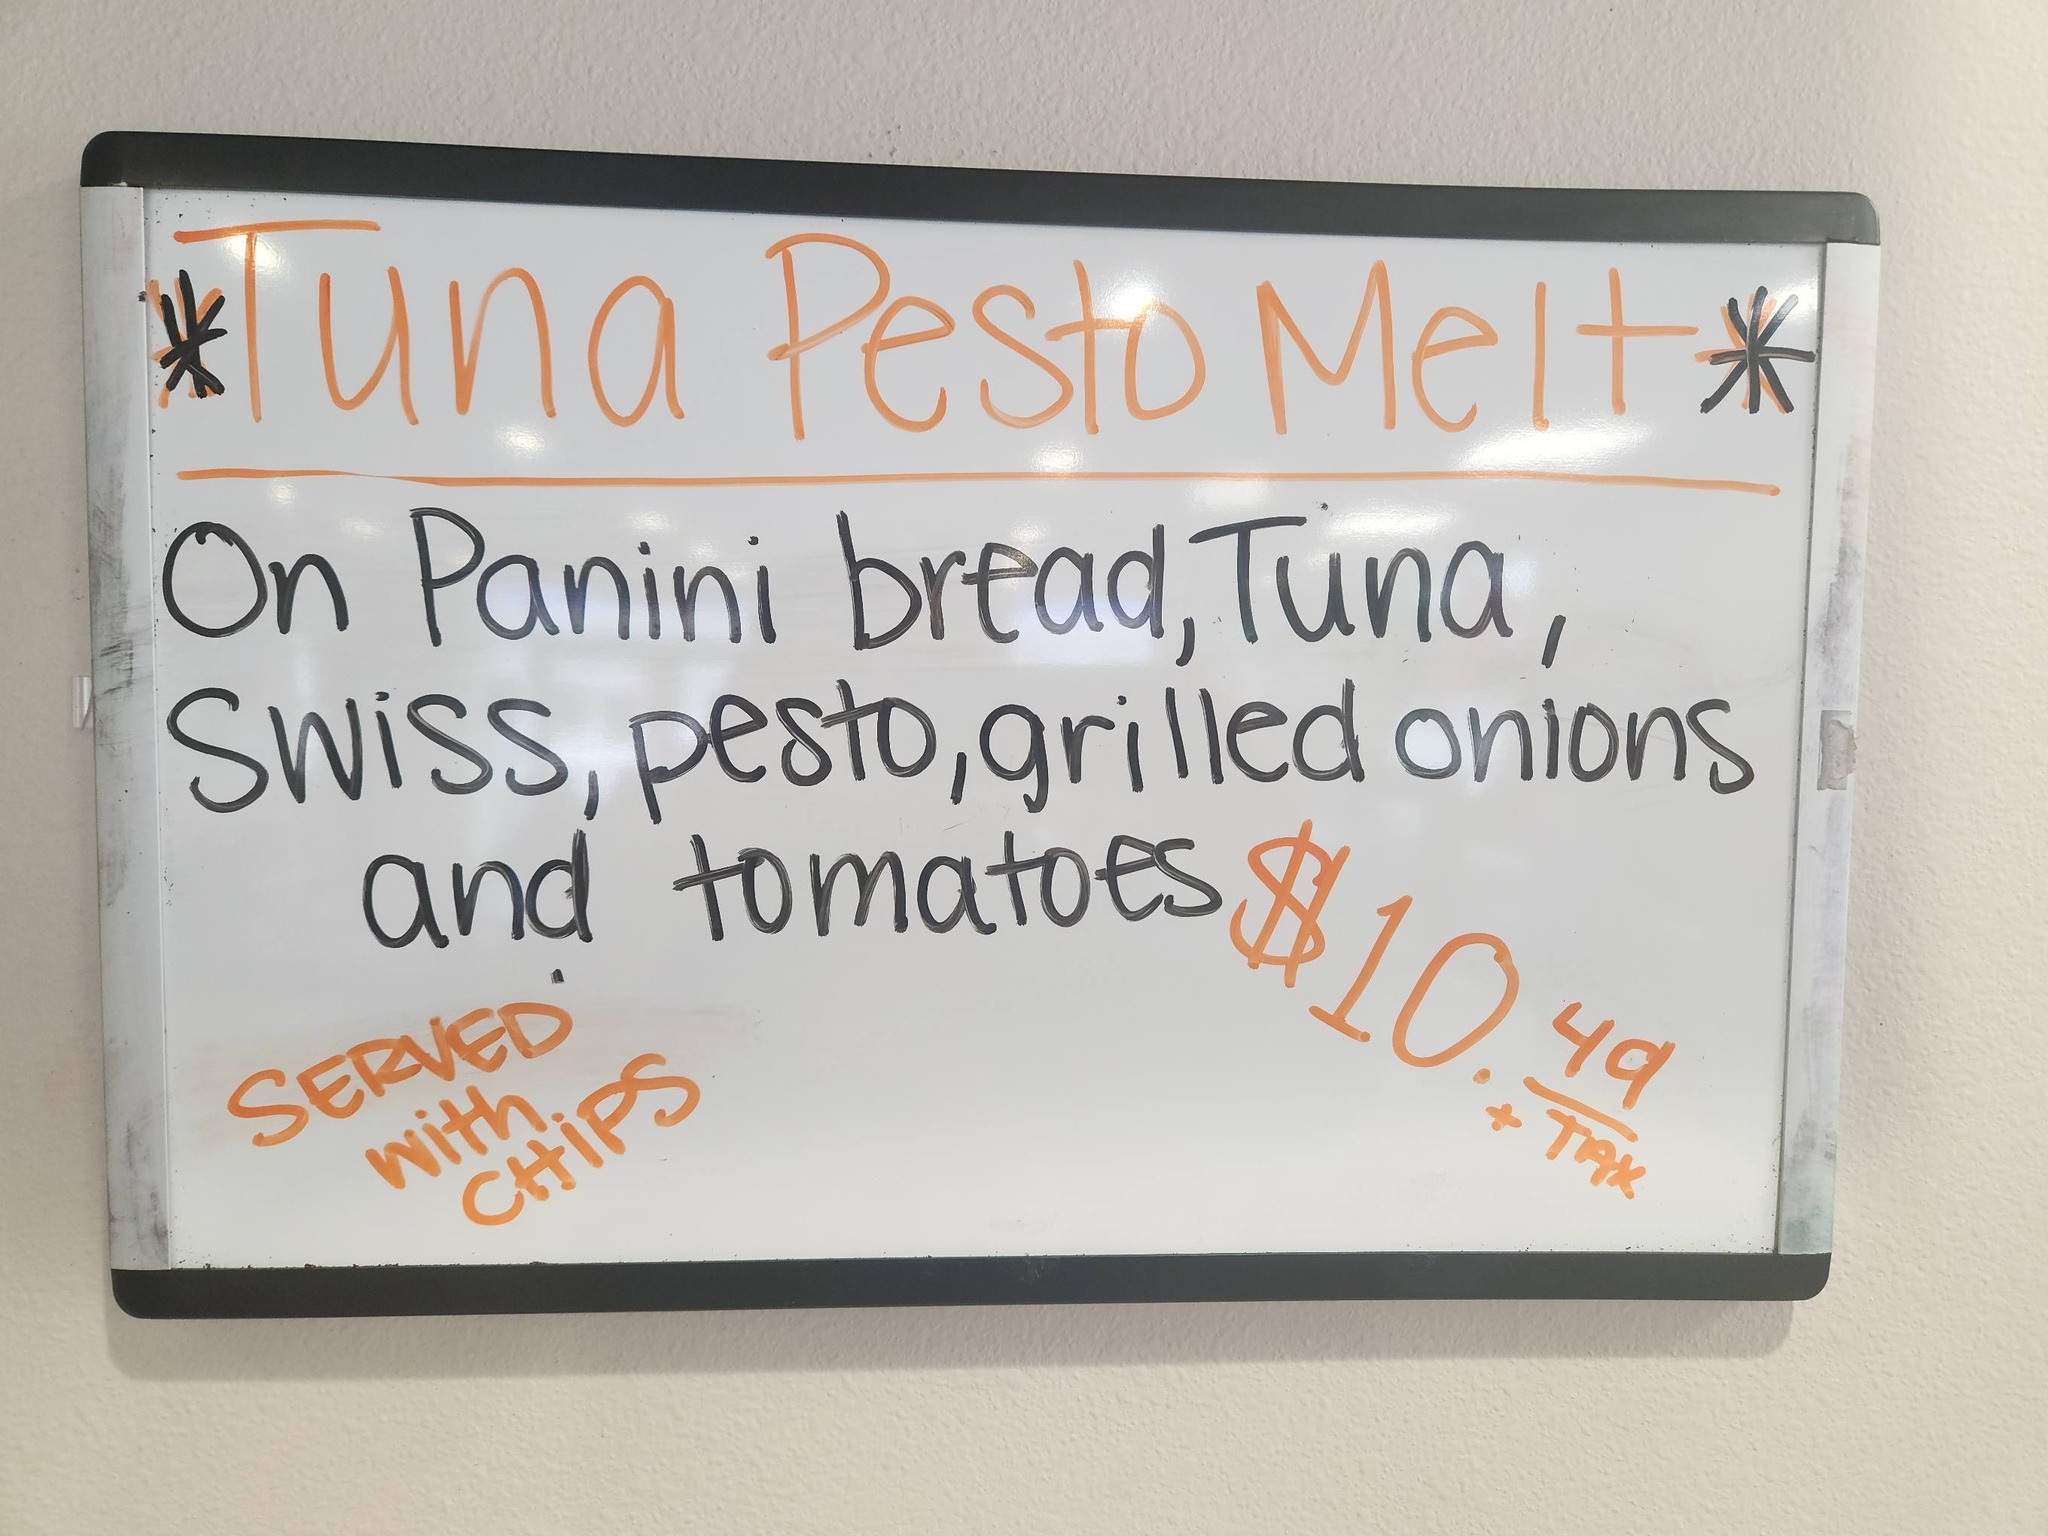 *Tuna Pesto Melt*
On Panini bread, Tuna,
Swiss, pesto, grilled onions
and tomatoes
$10.49
+ TAX
SERVED
with
CHIPS